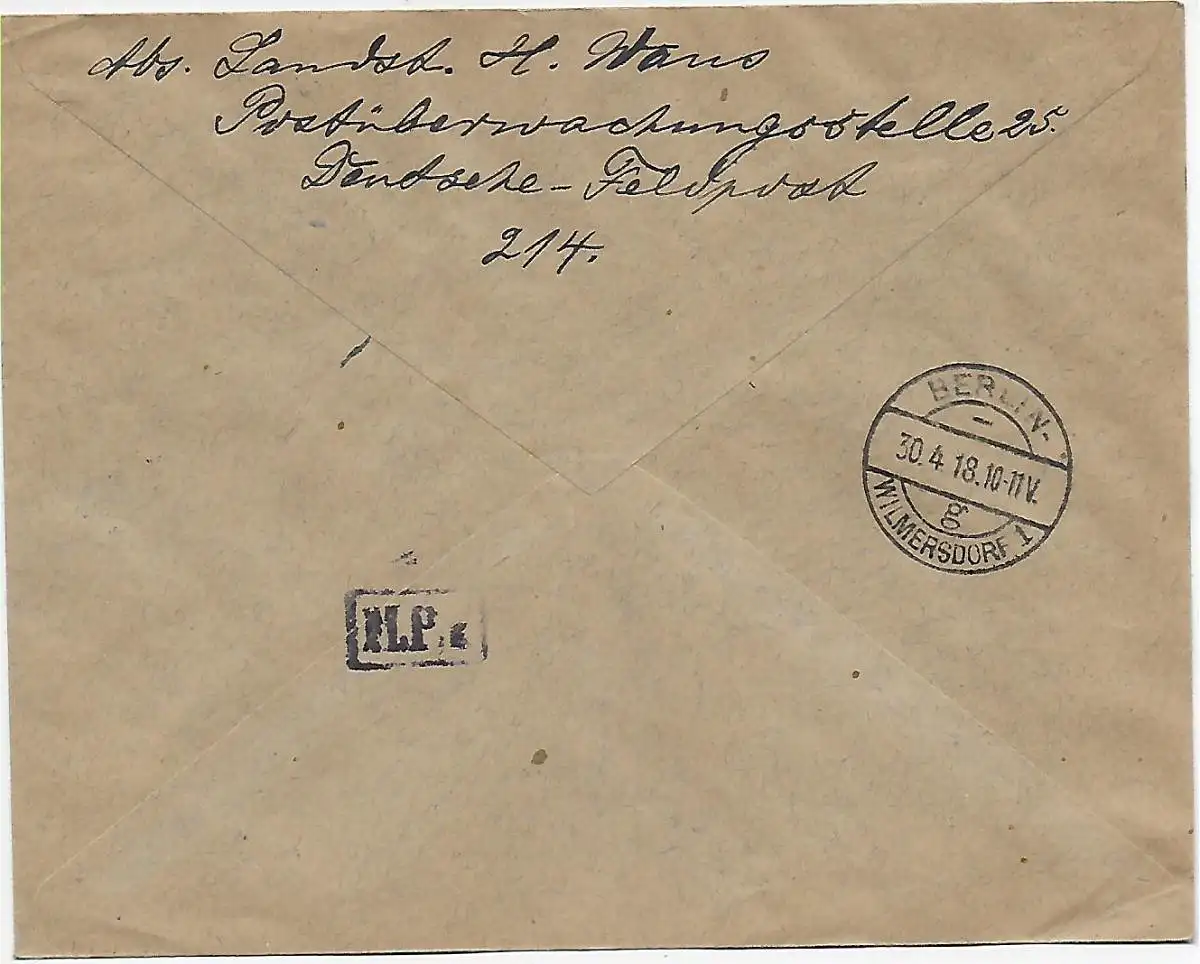 Abs. Landst. H. Wans
Postüberwachungsstelle 25.
Deutsche-Feldpost
214.
BERLIN-
30.4.18.10-11V.
g
WILMERSDORF 1
M.P.